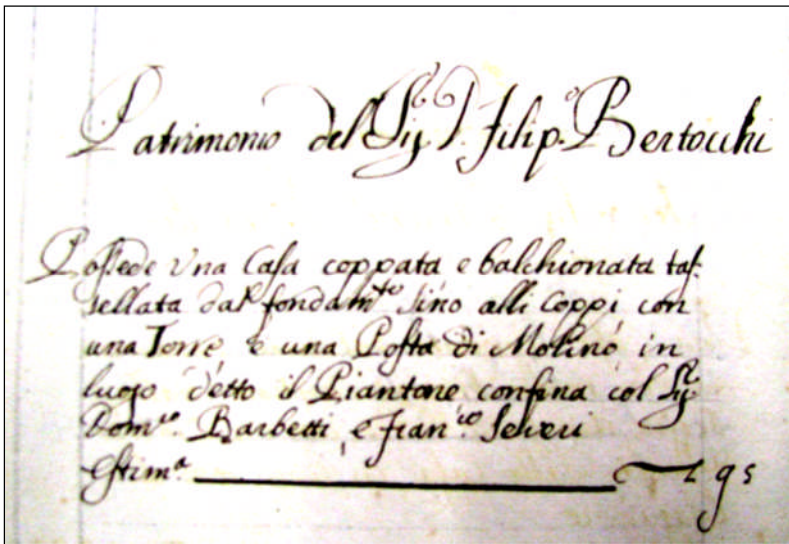 Patrimonio del Sig.r D. Filip.o Bertocchi
Possede Una Casa coppata e balchionata tas=
sellata dal fondam.to sino alli coppi con
una Torre, è una Posta di Molino in
luogo detto il Piantone confina col Sig.r
Dom.co Barbetti, e Fran.co Severi
Estim.a